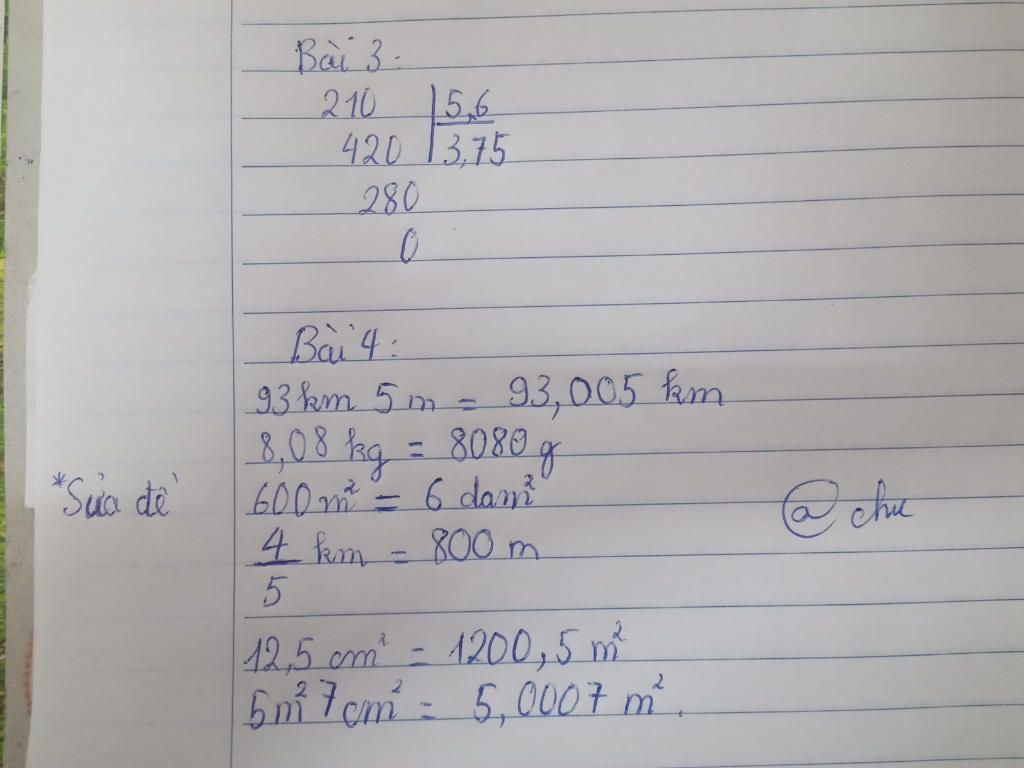 Bài 3:
210 5,6
420 3,75
280
0
Bài 4:
93 km 5 m = 93,005 km
8,08 kg = 8080 g
*Sửa đề 600 m² = 6 dam²
@ chu
4/5 km = 800 m
12,5 cm² = 1200,5 m²
5m² 7cm² = 5,0007 m².